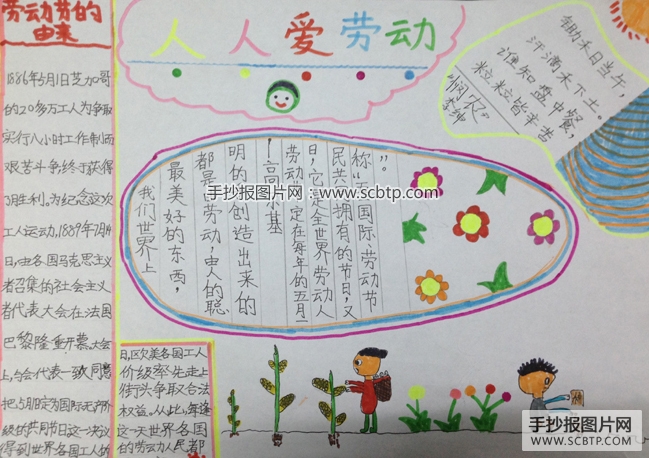 劳动节的
由来
1886年5月1日芝加哥
的20多万工人为争取
实行八小时工作制而
艰苦斗争终于获得
了胜利。为纪念这次
工人运动,1889年7月14
日,由各国马克思主义
者召集的社会主义
者代表大会在法国
巴黎隆重开幕。大会
上,与会代表一致同意
把5月1日定为国际无产阶
级的共同节日这一决议
得到世界各国工人的
日,区欧美各国工人
价级率先走上
街头争取合法
权益。从此,每逢
这一天世界各国
的劳动人民都
人人爱劳动
锄禾日当午,
汗滴禾下土。
谁知盘中餐,
粒粒皆辛苦
"悯农"
李绅
我们世界上
最美好的东西,
都是 劳动,由人的聪
明的 创造出来的
高 基
劳动 定在每年的五月一
日,它是全世界劳动人
民共 拥有的节日,又
称“ 国际劳动节
”。
手抄报图片网:www.scbtp.com
手抄报图片网
WWW.SCBTP.COM